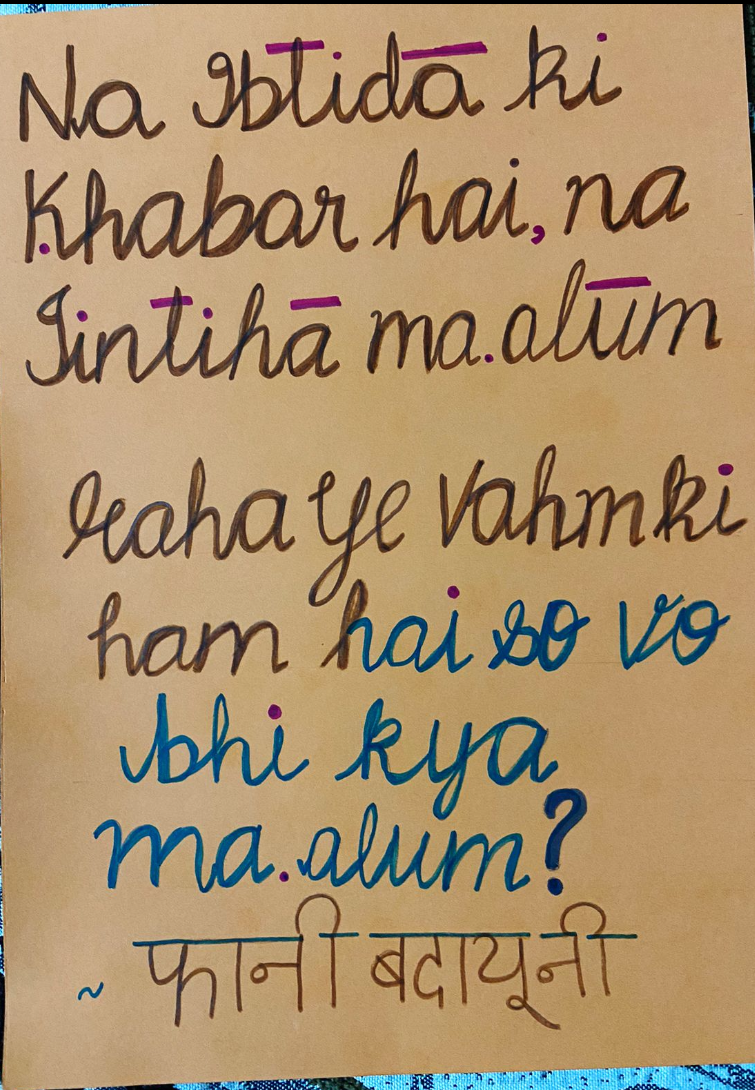 Na Ibtidā ki
Ḳhabar hai, na
Iintihā ma.alūm
raha ye vahm ki
ham hai so vo
bhi kya
ma.alum?
~ फानी बदायूनी